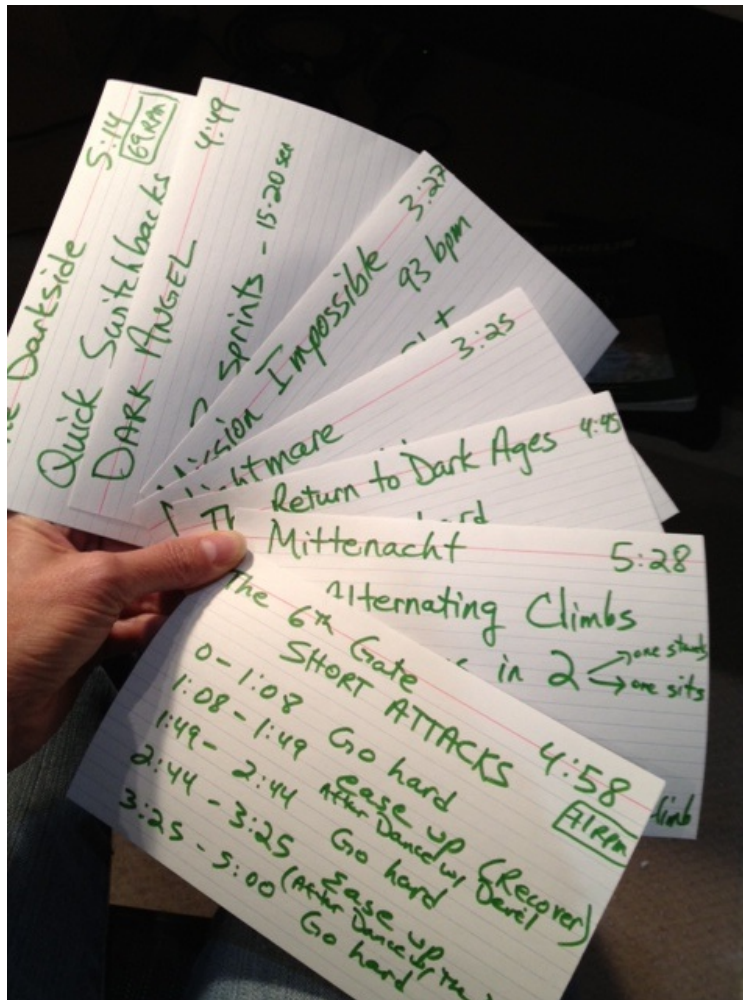 Darkside 5:14
69 RPM
Quick Switchbacks
DARK ANGEL 4:49
sprints - 15-20 sec
Mission Impossible 3:27
93 bpm
Nightmare 3:25
Return to Dark Ages 4:45
Mittenacht 5:28
Alternating Climbs
in 2 one stands
one sits
climb
The 6th Gate 4:58
SHORT ATTACKS 71 RPM
0-1:08 Go hard
1:08-1:49 ease up (Recover)
After Dance w/ Devil
1:49-2:44 Go hard
2:44-3:25 Ease up
(After Dance w/ the
3:25-5:00 Go hard